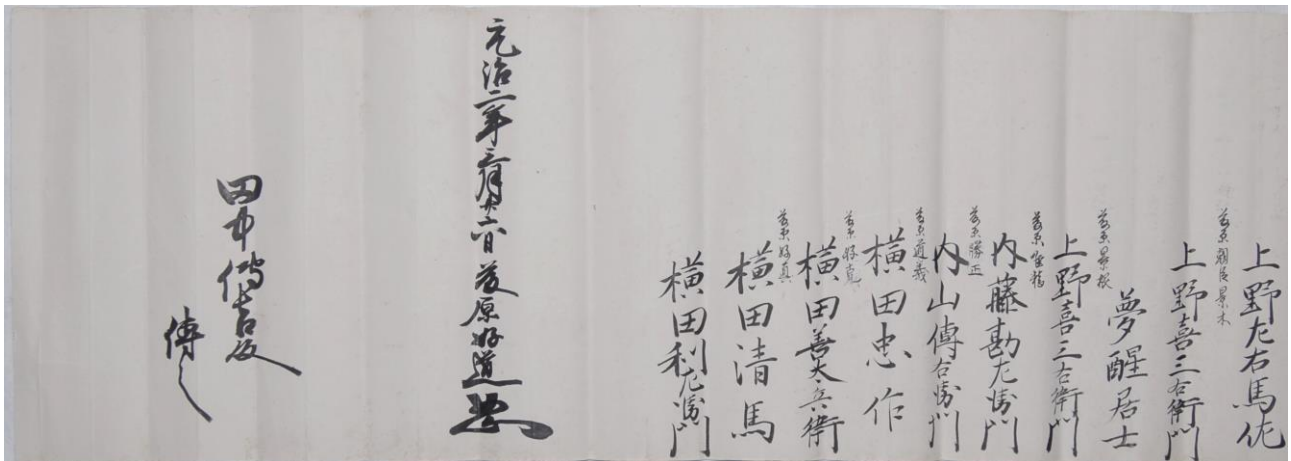 上野左右馬佐
藤原朝臣景木
上野喜三右衛門
夢醒居士
藤原景
上野喜三右衛門
藤原
内藤勘左衛門
藤原勝正
内山傳右衛門
藤原道義
横田忠作
藤原好克
横田善太兵衛
藤原好真
横田清馬
横田利左衛門
元治二年 藤原好道
田中傳吉殿
傳之